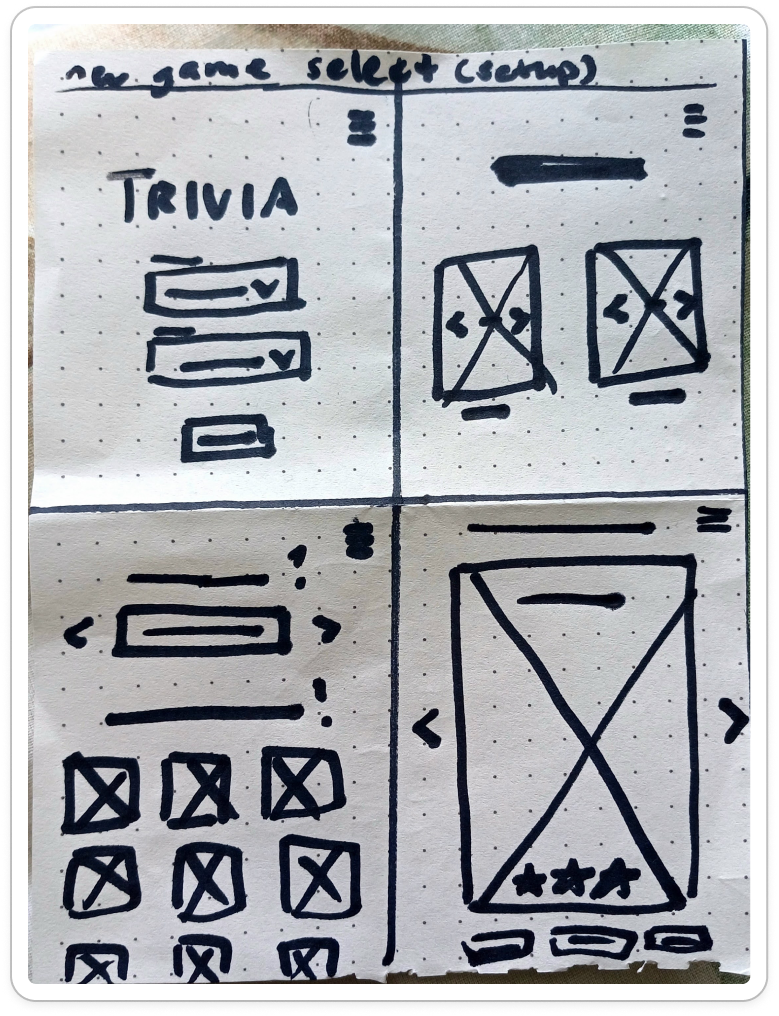 new game select (setup)
TRIVIA
?
!